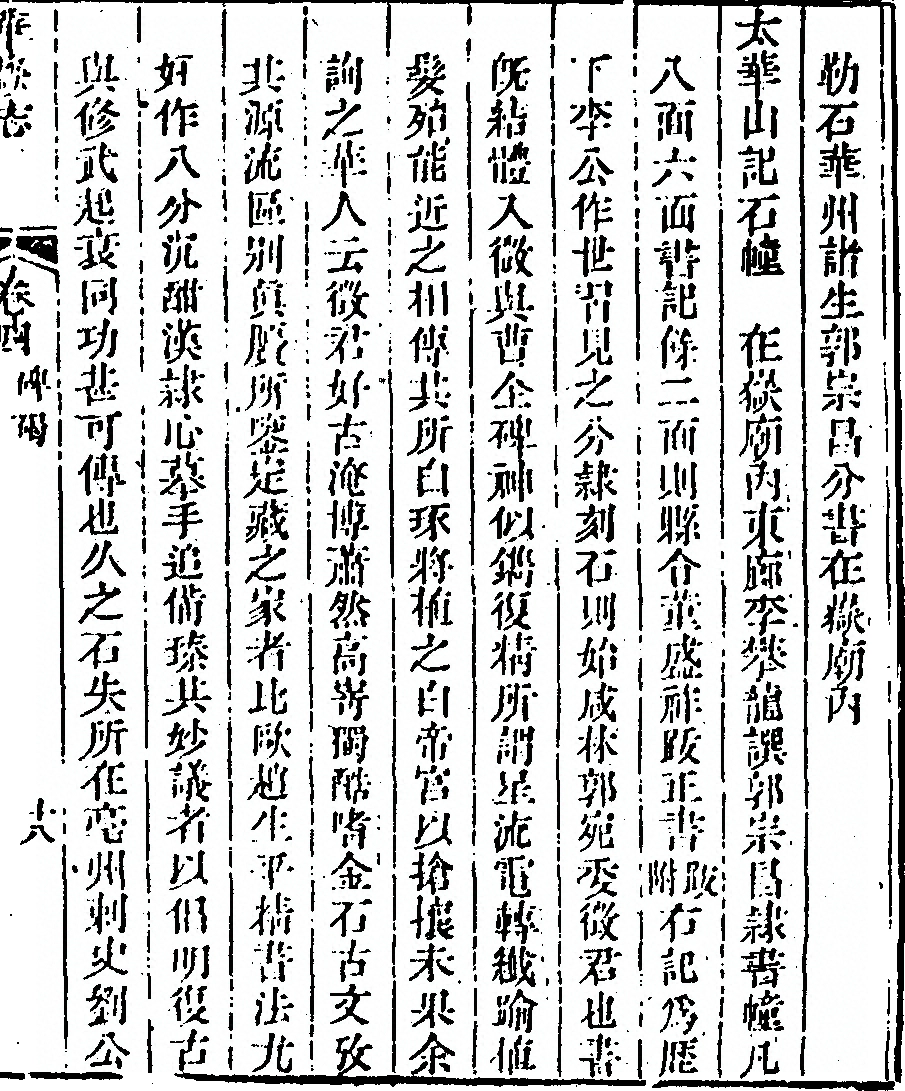 勒石華州諸生郭崇昌分書在嶽廟內
太華山記石幢　在嶽廟內東廊李攀龍譔郭崇昌隸書幢凡
八面六面書記餘二面則縣令董盛祚跋正書附跋右記爲歷
下李公作世習見之分隸刻石則始咸林郭宛委徵君也書
旣結體入微與曹全碑神似鐫復精所謂星流電轉纖踰植
髮殆能近之相傳其所自琢將植之白帝宮以搶攘未果余
詢之華人云徵君好古淹博蕭然高寄獨酷嗜金石古文攷
其源流區別眞贋所鑒定藏之家者比歐趙生平精書法尤
好作八分沉酣漢隸心摹手追備臻其妙議者以倡明復古
與修武起衰同功甚可傳也久之石失所在亳州刺史劉公
華嶽志
卷四　碑碣
十八